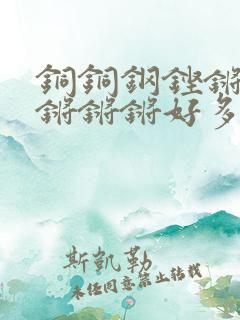 銅銅鋼鏗鏘
鏘鏘鏘好多
斯凱勒
未經同意禁止轉載